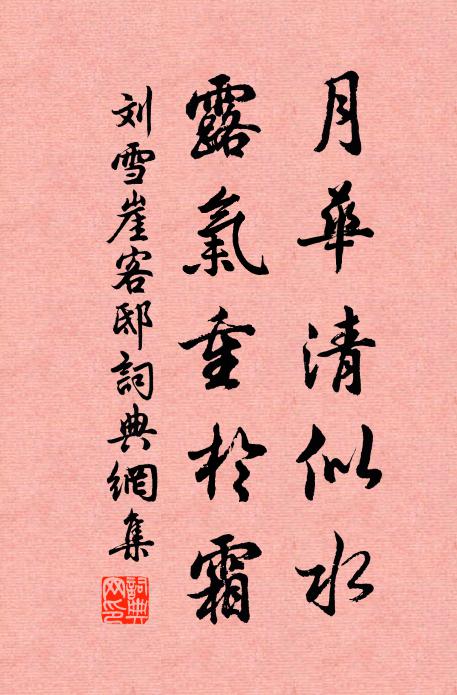 月華清似水
露氣重於霜
刘雪崖客邸詞典網集
詞典网印